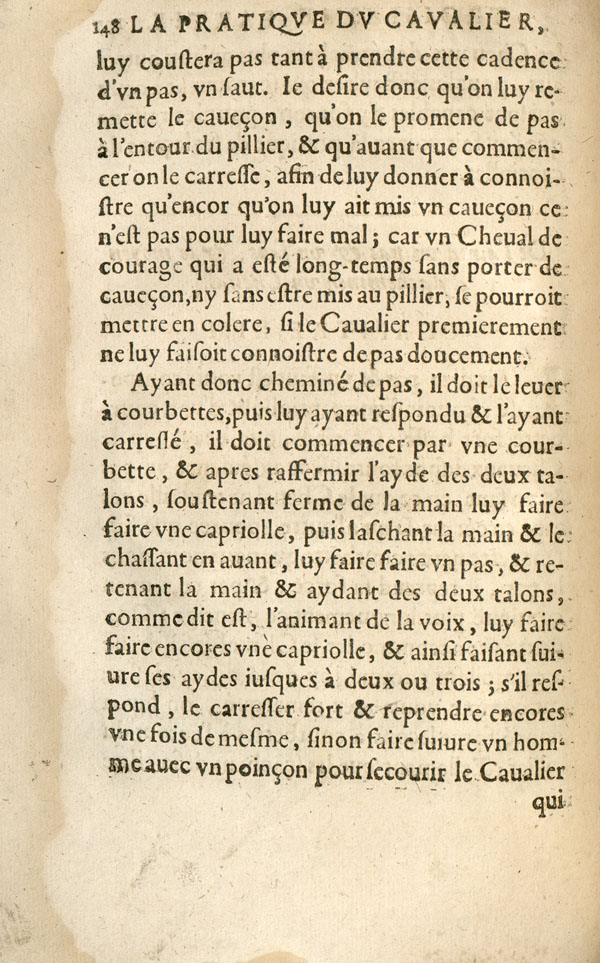 148 LA PRATIQVE DV CAVALIER,
luy couſtera pas tant à prendre cette cadence
d'vn pas, vn ſaut. Ie deſire donc qu'on luy re-
mette le caueçon, qu'on le promene de pas
à l'entour du pillier, & qu'auant que commen-
cer on le carreſſe, afin de luy donner à connoi-
ſtre qu'encor qu'on luy ait mis vn caueçon ce
n'eſt pas pour luy faire mal; car vn Cheual de
courage qui a eſté long-temps ſans porter de
caueçon, ny ſans eſtre mis au pillier, ſe pourroit
mettre en colere, ſi le Caualier premierement
ne luy faiſoit connoiſtre de pas doucement.
Ayant donc cheminé de pas, il doit le leuer
à courbettes, puis luy ayant reſpondu & l'ayant
carreſſé, il doit commencer par vne cour-
bette, & apres raffermir l'ayde des deux ta-
lons, ſouſtenant ferme de la main luy faire
faire vne capriolle, puis laſchant la main & le
chaſſant en auant, luy faire faire vn pas, & re-
tenant la main & aydant des deux talons,
comme dit eſt, l'animant de la voix, luy faire
faire encores vnè capriolle, & ainſi faiſant ſui-
ure ſes aydes iuſques à deux ou trois; s'il reſ-
pond, le carreſſer fort & reprendre encores
vne fois de meſme, ſinon faire ſuiure vn hom-
me auec vn poinçon pour ſecourir le Caualier
qui